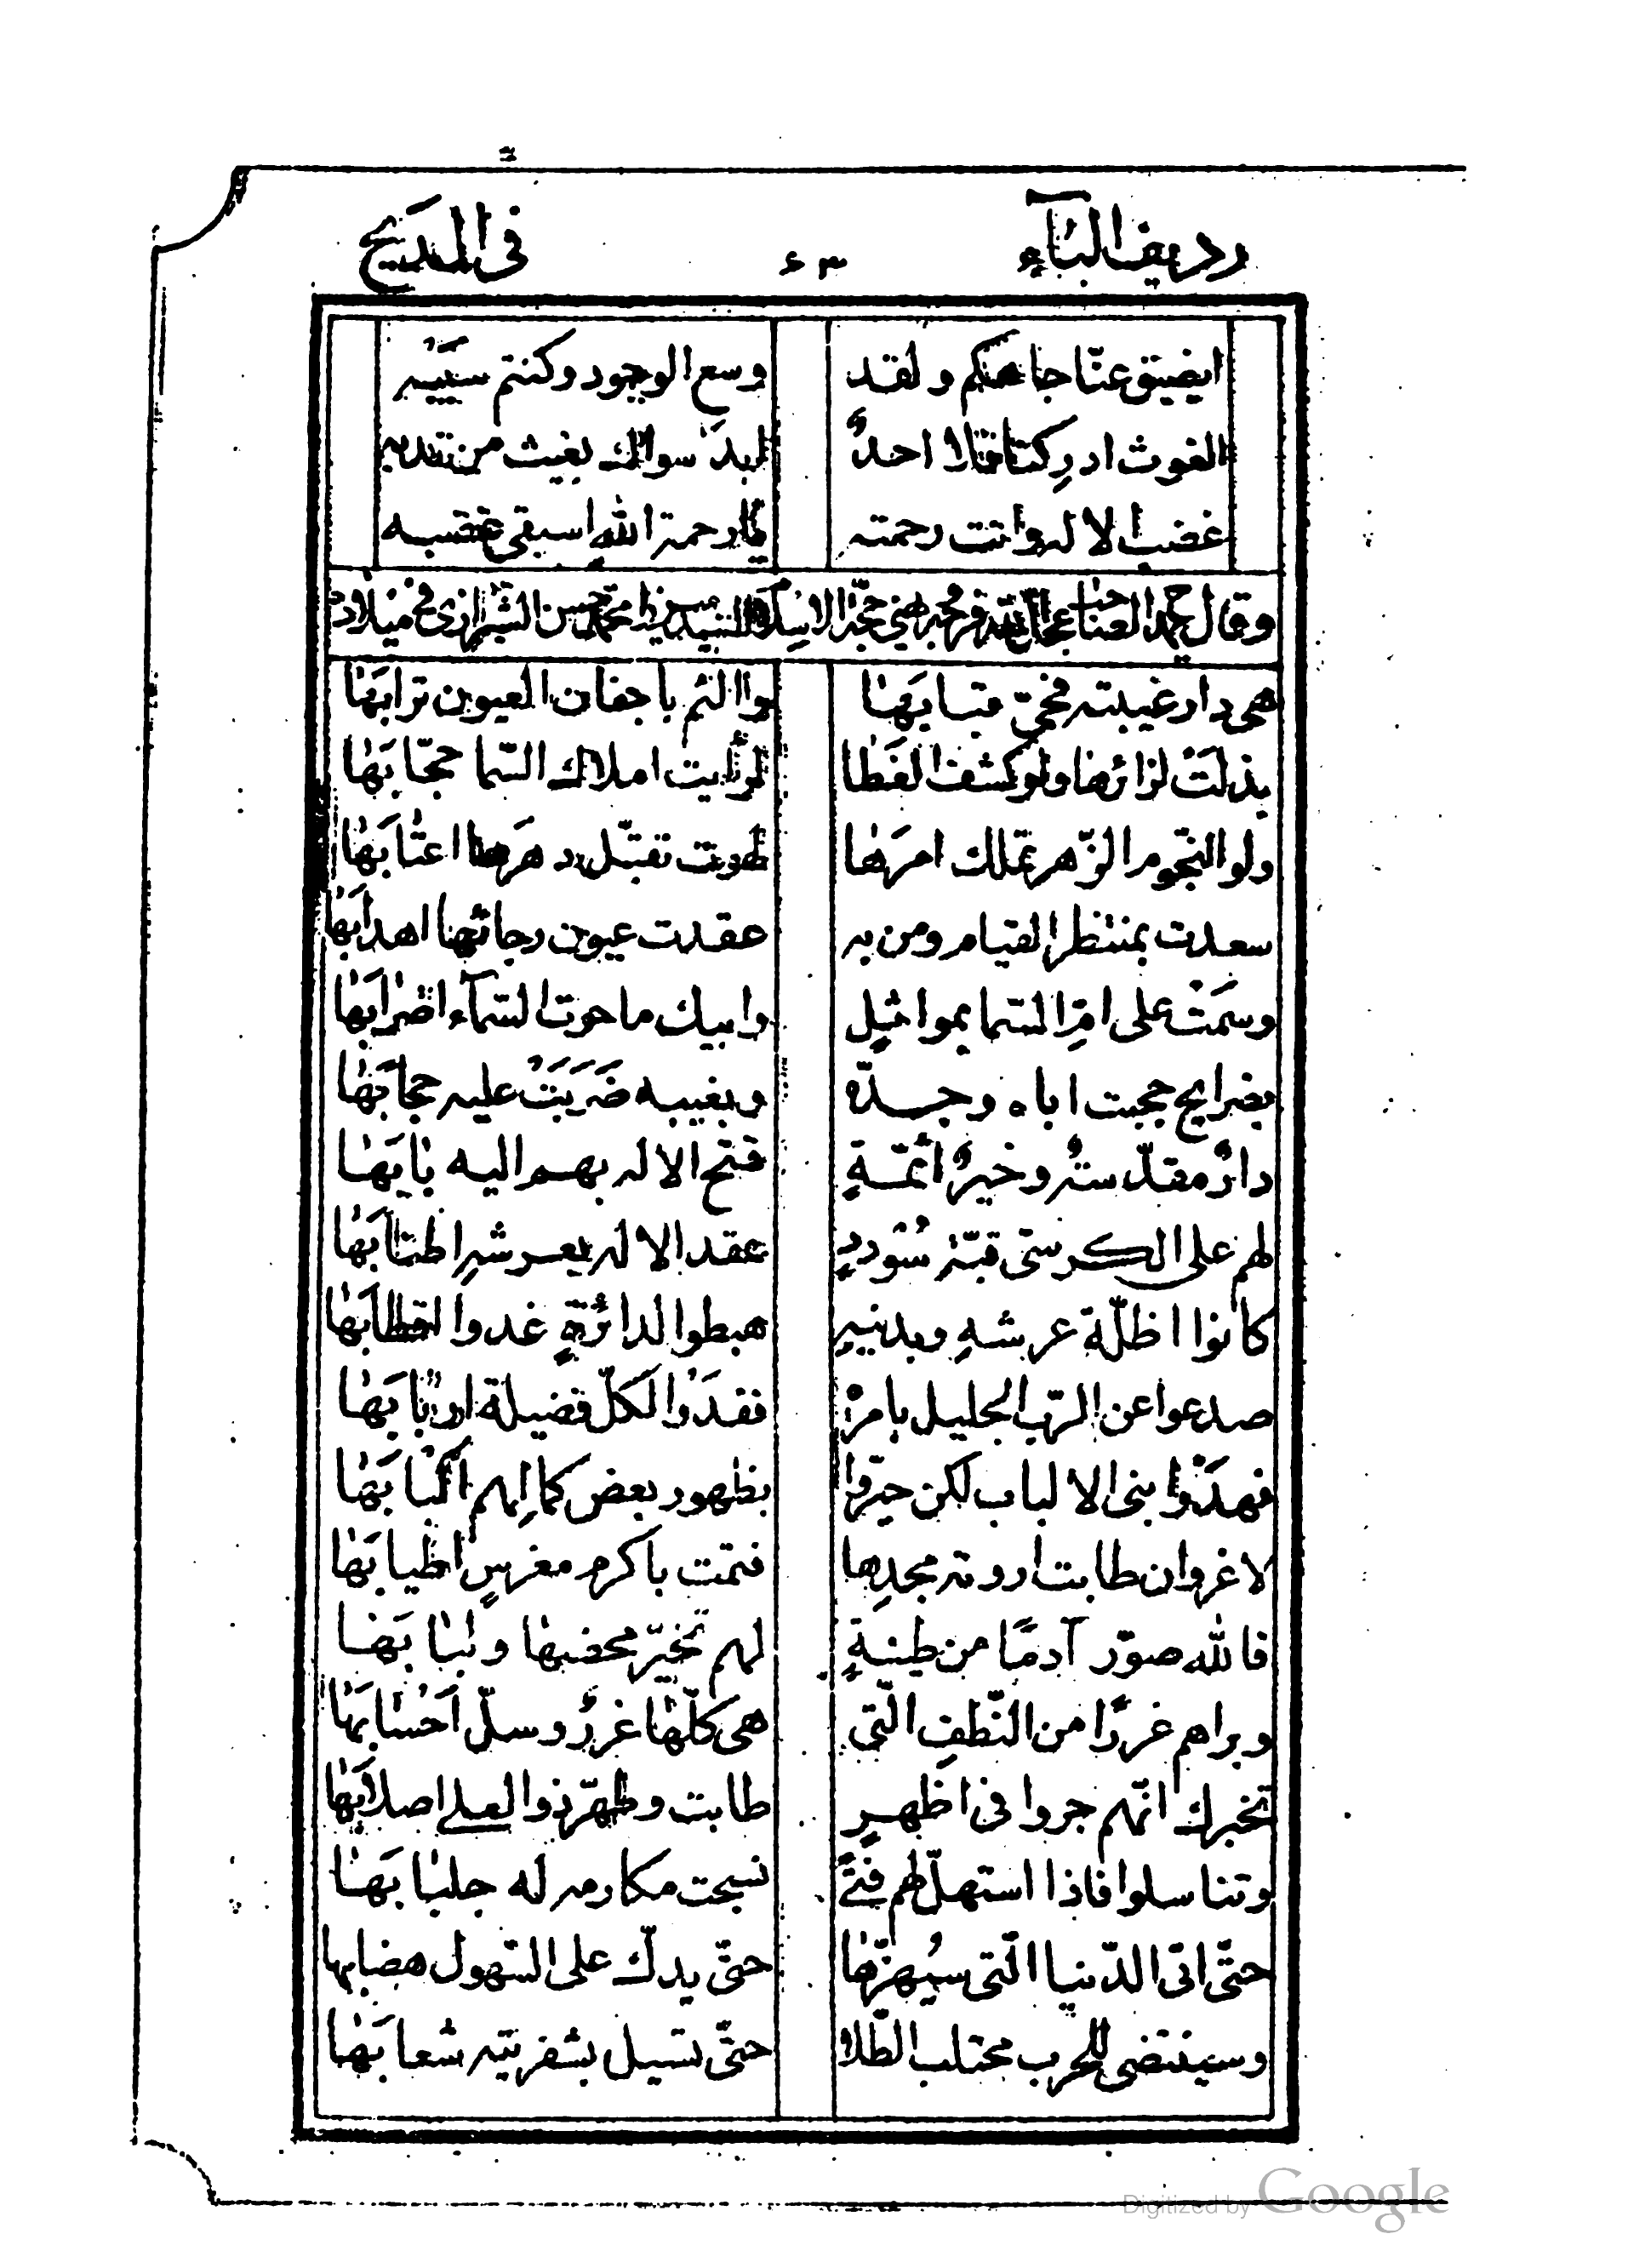 رديف الباء ٤٣ في المديح
ايضيق عنّا جاهكم ولقد وسع الوجود وكنتم سَبَبَه
الغوث ادرِكنا فلا احدٌ ابدَ سواك يغيث من ندبه
غضب الاله وانت رحمته يا رحمة الله اسبقى غضبه
وقال صاحب عجل الله فرجه حجّة الاسلام السيد ميرزا محمد حسن الشيرازى فى ميلاد
هى دار غيبته فحىّ قبابَها والثم باجفان العيون ترابَها
بذلَت لزائرها ولو كشف الغطا لرأيت املاك السّما حجّابَها
ولو النّجوم الزّهر تملك امرَها لهوت تقبّل دهرَها اعتابَها
سعدت بمنتظر القيام ومن به عقدت عيون رجائها اهدابَها
وسمَت على امّ السّما بمواثلٍ وابيك ما حوت السّماء اضرابَها
بضرايح حجبت اباه وجدّه وبغيبه ضَرَبَتْ عليه حجابَها
دارٌ مقدّسة وخيرُ ائمّةٍ فتح الاله بهم اليه بابَها
لهم على الكرسىّ قبّة سُؤددٍ عقد الاله بعرشه اطنابَها
كانوا اظلّة عرشهِ وبدينهِ هبطوا لدائرةٍ غدوا اقطابَها
صدعوا عن الرّب الجليل بامرهْ فغدَوا لكلّ فضيلة اربابَها
فهدَوا بنى الالباب لكن حيّروا بظهور بعض كمالهم البابَها
لا غرو ان طابت ارومة مجدِها فنمت باكرم مغرسٍ اطيابَها
فالله صوّر آدمًا من طينةٍ لهم تخيّر محضها ولبابَها
وبراهم غررًا من النّطفِ الّتى هى كلّها غررٌ وسل احسابَها
تخبرك انّهم جروا فى اظهرٍ طابت وطهّر ذو العلى اصلابَها
وتناسلوا فاذا استهلّ لهم فتىً نسجت مكارمه له جلبابَها
حتّى اتى الدّنيا الّتى سيُهزّها حتّى يدكّ على السّهول هضابها
وسينتضى للحرب محتلب الطّلا حتّى تسيل بشفرتيه شعابَها
Digitized by Google